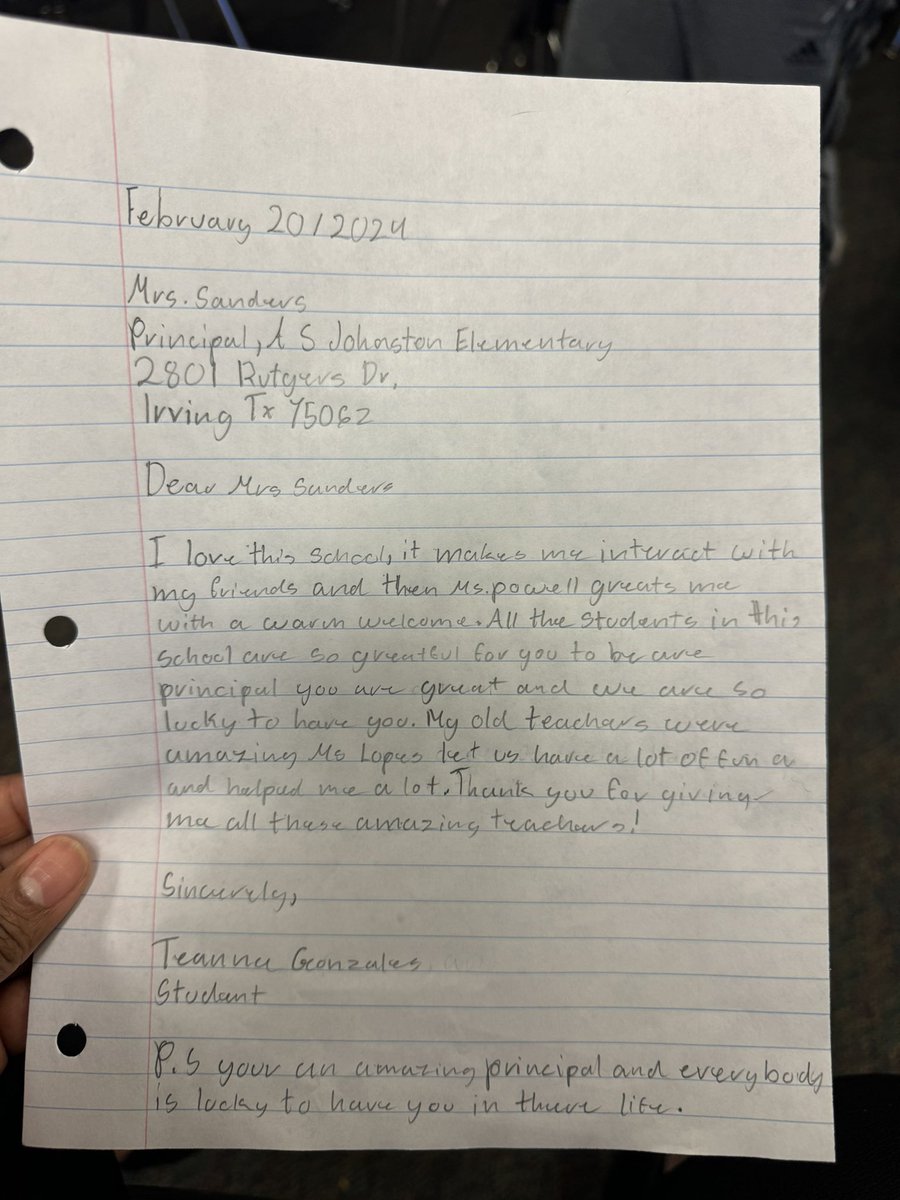 February 20/2024
Mrs. Sanders
Principal, A S Johnston Elementary
2801 Rutgers Dr,
Irving Tx 75062
Dear Mrs Sanders
I love this school, it makes me interact with
my friends and then Ms. powell greats me
with a warm welcome. All the students in this
school are so greatful for you to be are
principal you are great and we are so
lucky to have you. My old teachers were
amazing Ms Lopes let us have a lot of fun a
and helped me a lot. Thank you for giving
me all these amazing teachers!
Sincerely,
Teanna Gonzales
Student
P.S your an amazing principal and everybody
is lucky to have you in there life.